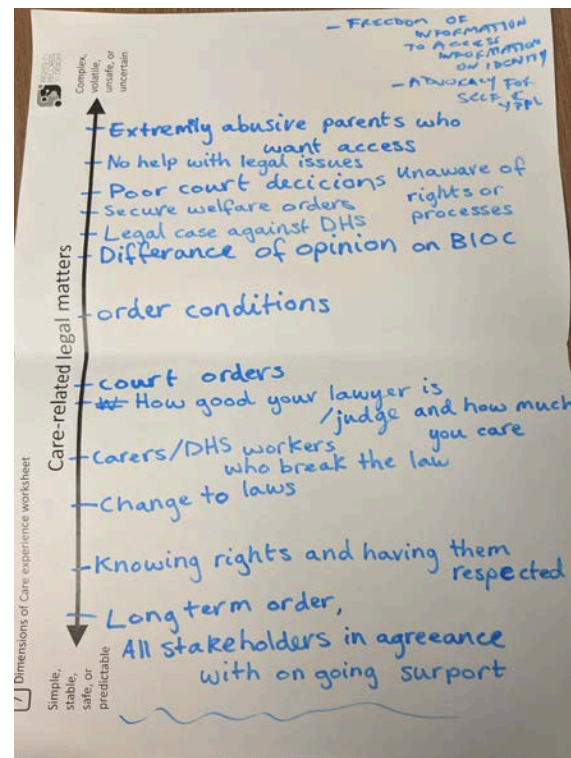 - FREEDOM OF
INFORMATION
TO ACCESS
INFORMATION
ON IDENTITY
- ADVOCACY FOR
SELF &
YPPL
RIGHTS IN
RECORDS
BY DESIGN
Complex,
volatile,
unsafe, or
uncertain
Extremily abusive parents who
want access
No help with legal issues
Poor court decicions
Unaware of
rights or
processes
Secure welfare orders
Legal case against DHS
Differance of opinion on BIOC
order conditions
court orders
How good your lawyer is
/judge and how much
you care
Carers/DHS workers
who break the law
Change to laws
Knowing rights and having them
respected
Long term order,
All stakeholders in agreeance
with on going surport
Care-related legal matters
Dimensions of Care experience worksheet
Simple,
stable,
safe, or
predictable